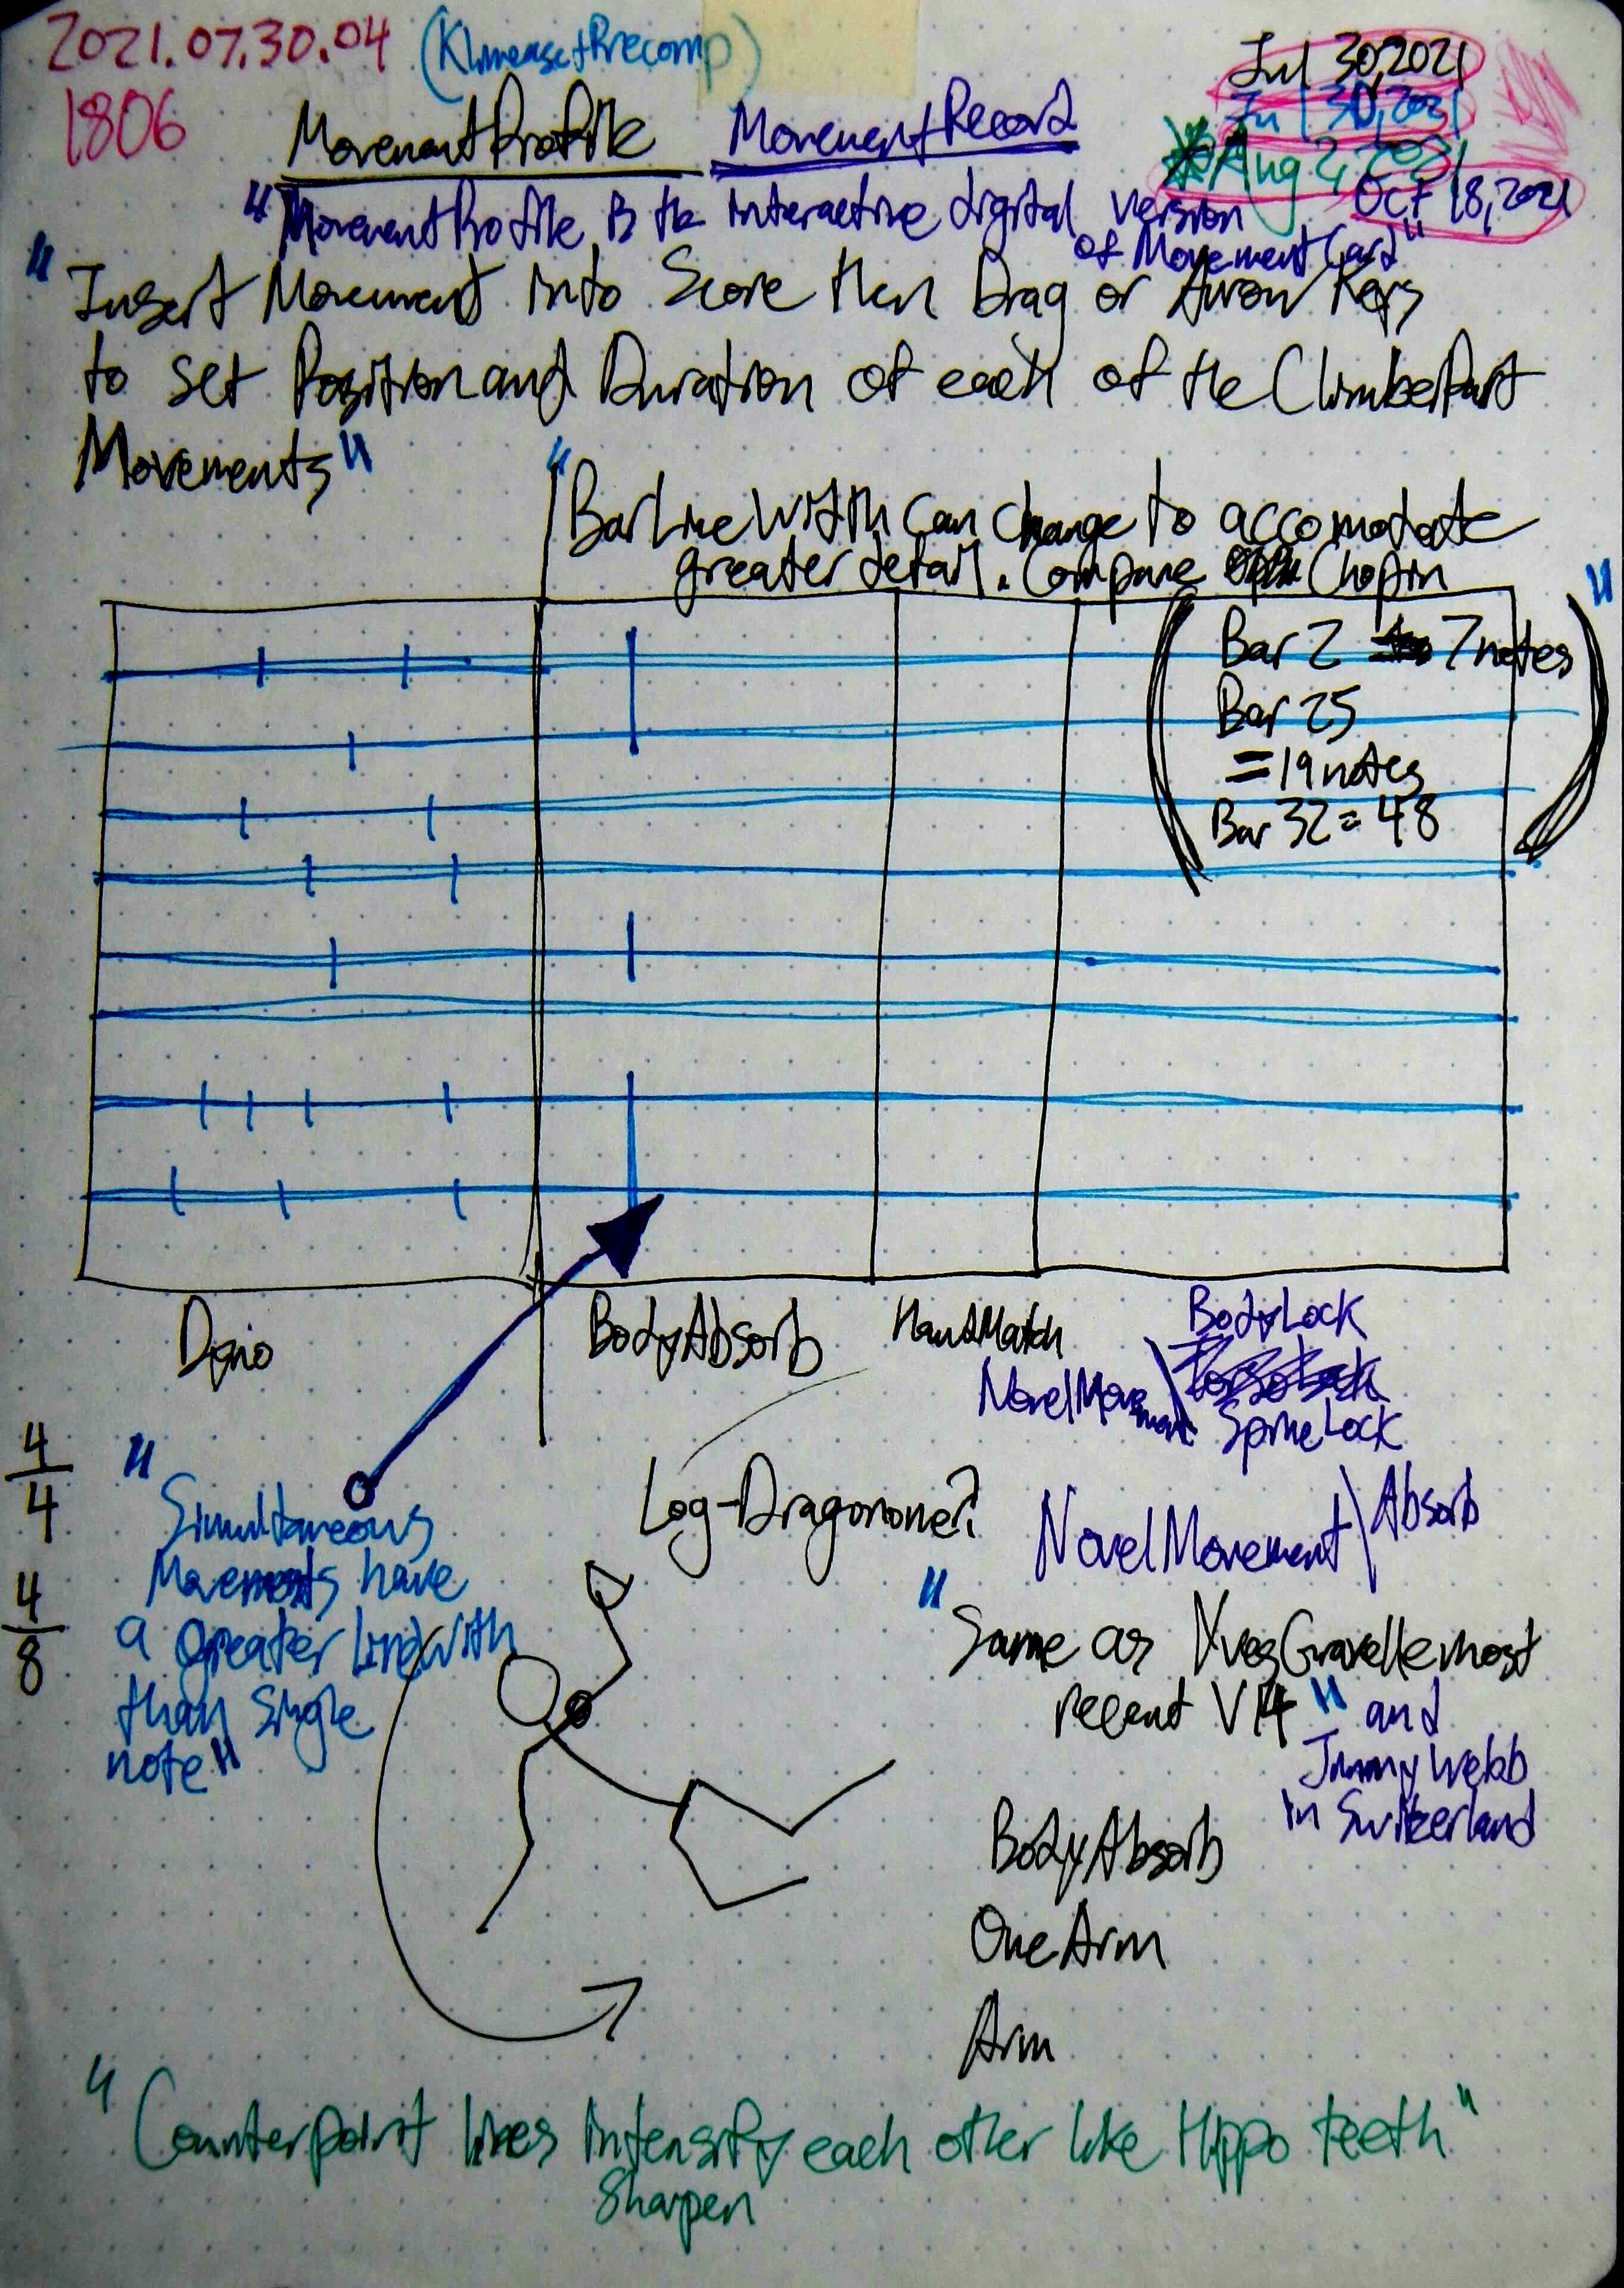 2021.07.30.04 (KlimeasetPrecomp)
1806
Jul 30,2021
Jul 30,2021
Aug 2, 2021
Oct 18,2021
MovementProfile MovementRecord
"MovementProfile is the interactive digital version
of MovementCard"
"Insert Movement into Score then Drag or Arrow Keys
to set Position and Duration of each of the ClimberPart
Movements"
"BarLineWidth can change to accomodate
greater detail. Compare Chopin
(Bar 2 7 notes
Bar 25
=19 notes
Bar 32 = 48)"
Dyno
BodyAbsorb
HandMatch
BodyLock
NovelMovement \
SpineLock
4/4
4/8
"Simultaneous
Movements have
a greater Linewith
than single
note"
Log-Dragonone?
NovelMovement \ Absorb
"Same as YvesGravelle most
recent V14" and
Jimmy Webb
in Switzerland
BodyAbsorb
OneArm
Arm
"Counterpoint lines intensify each other like Hippo teeth"
sharpen